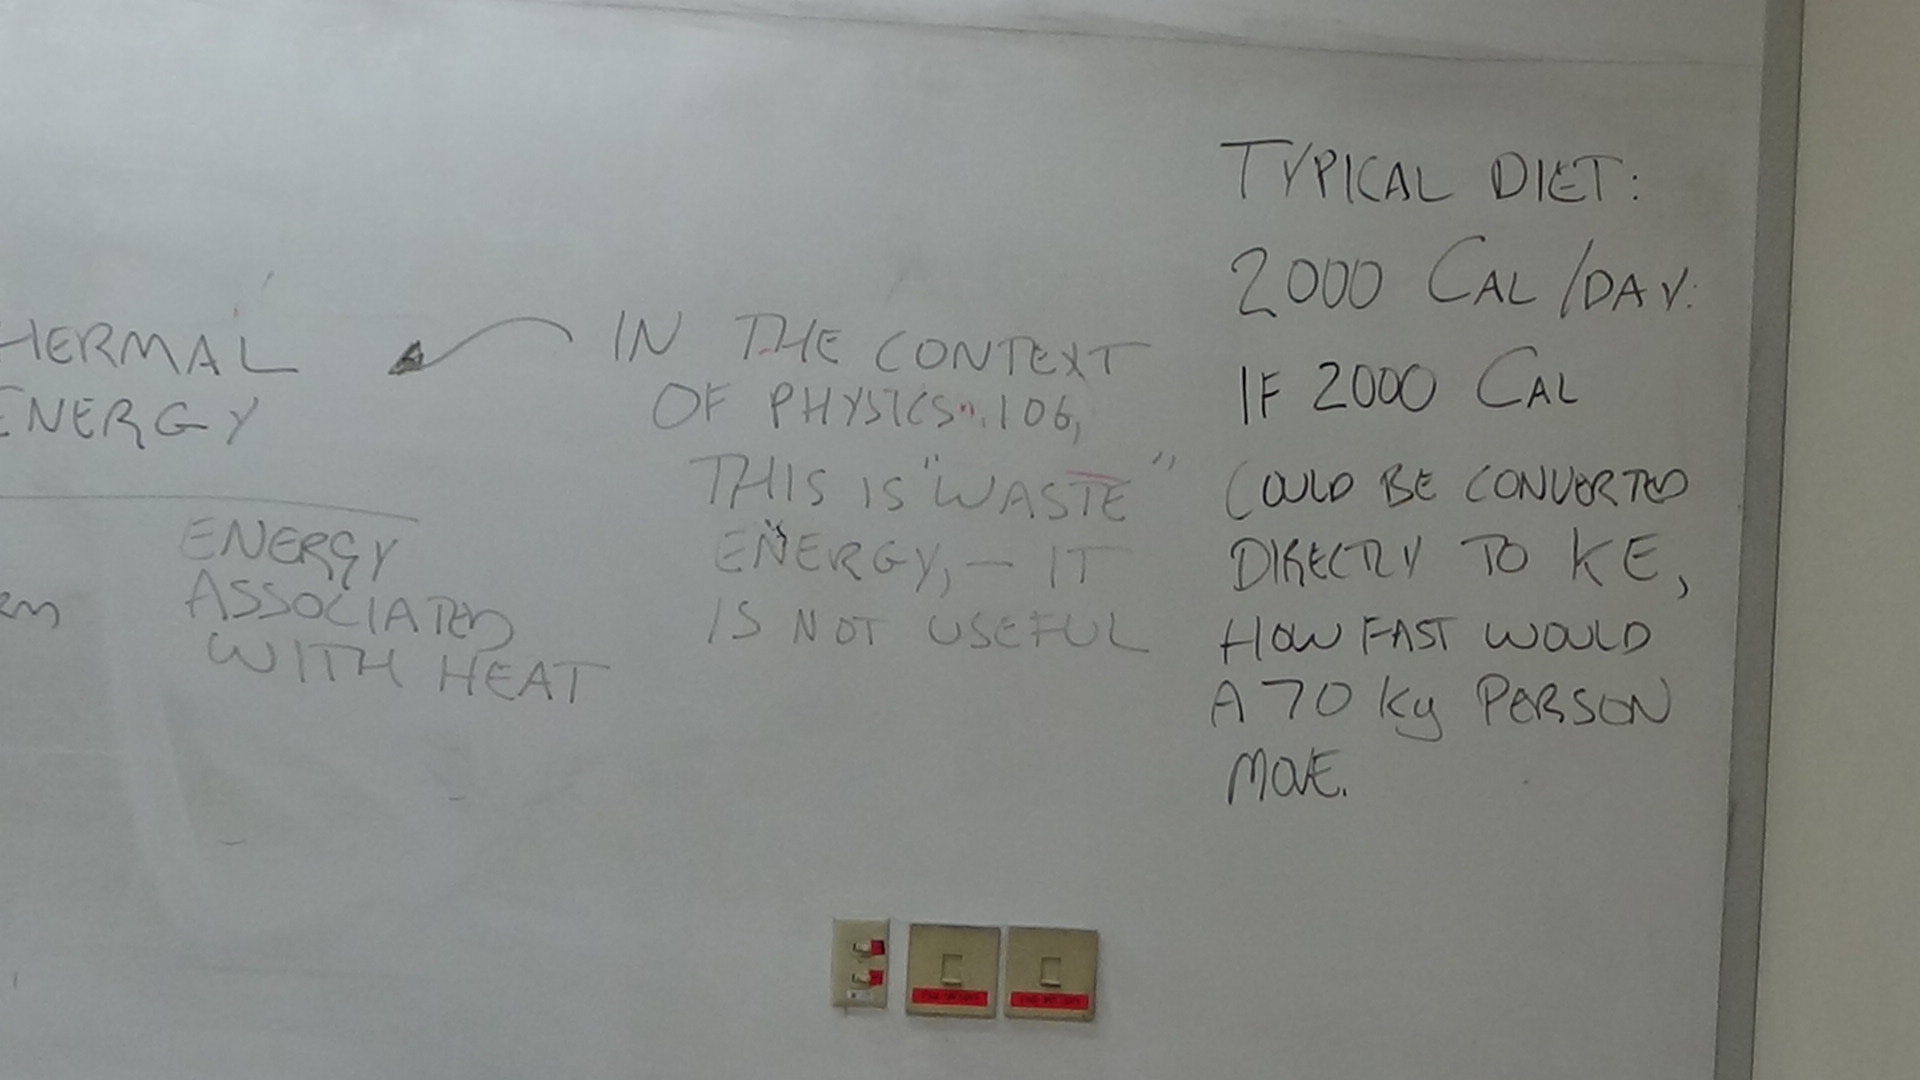 HERMAL
ENERGY
ENERGY
ASSOCIATED
WITH HEAT
IN THE CONTEXT
OF PHYSICS 106,
THIS IS "WASTE"
ENERGY, — IT
IS NOT USEFUL
TYPICAL DIET:
2000 CAL/DAY.
IF 2000 CAL
COULD BE CONVERTED
DIRECTLY TO KE,
HOW FAST WOULD
A 70 kg PERSON
MOVE.